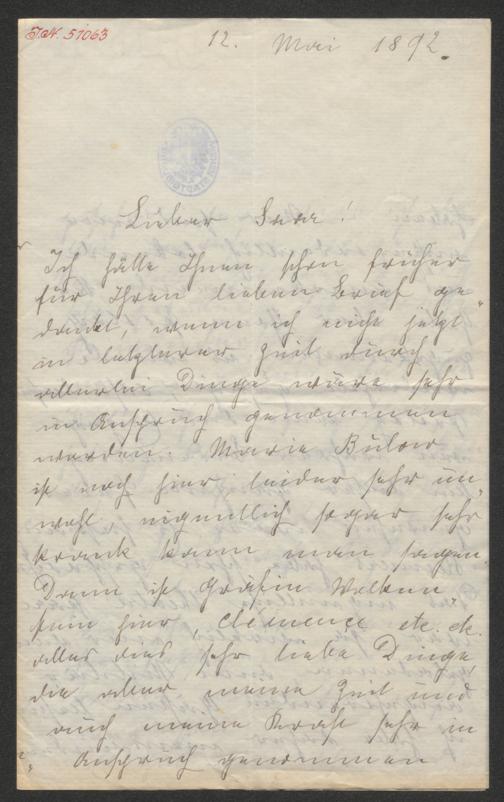 J.N. 51063
12. Mai 1892.
Lieber Saar!
Ich hätte Ihnen schon früher
für Ihren lieben Brief ge-
dankt, wenn ich nicht jetzt
in letzterer Zeit durch
allerlei Dinge wäre sehr
in Anspruch genommen
worden. Marie Bülow
ist noch hier, leider sehr un-
wohl eigentlich sogar sehr
krank kann man sagen.
Dann ist Gräfin Wilken-
stein hier, Clémence etc. etc.
alles dies sehr liebe Dinge
die aber meine Zeit und
auch meine Kraft sehr in
Anspruch genommen